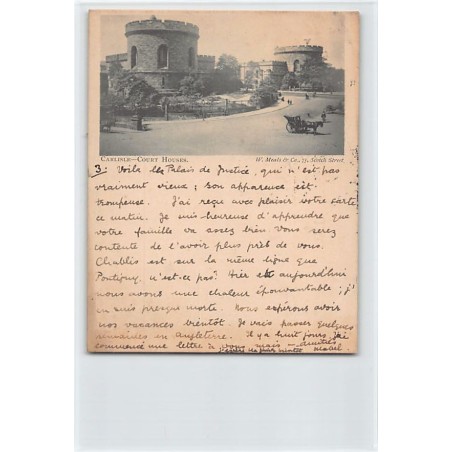 CARLISLE—COURT HOUSES.
W. Meals & Co., 27, Street.
3. Voilà les Palais de Justice, qui n'est pas
vraiment vieux; son apparence est
trompeuse. J'ai reçu avec plaisir votre carte
ce matin. Je suis heureuse d'apprendre que
votre famille va assez bien. Vous serez
contente de l'avoir plus près de vous.
Chablis est sur la même ligne que
Pontigny, n'est-ce pas? Hier et aujourd'hui
nous avons une chaleur épouvantable; j'
en suis presque morte. Nous espérons avoir
nos vacances bientôt. Je vais passer quelques
semaines en Angleterre. Il y a huit jours, j'ai
commencé une lettre à vous, mais — amitiés
Mabel.